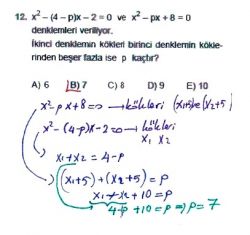 12. x² – (4 – p)x – 2 = 0 ve x² – px + 8 = 0
denklemleri veriliyor.
İkinci denklemin kökleri birinci denklemin kökle-
rinden beşer fazla ise p kaçtır?
A) 6 B) 7 C) 8 D) 9 E) 10
x² - px + 8 = 0 → kökleri (x₁+5)ve(x₂+5)
x² - (4-p)x - 2 = 0 → kökleri
x₁ x₂
x₁ + x₂ = 4-p
(x₁+5) + (x₂+5) = p
x₁ + x₂ + 10 = p
4-p + 10 = p ⇒ p = 7